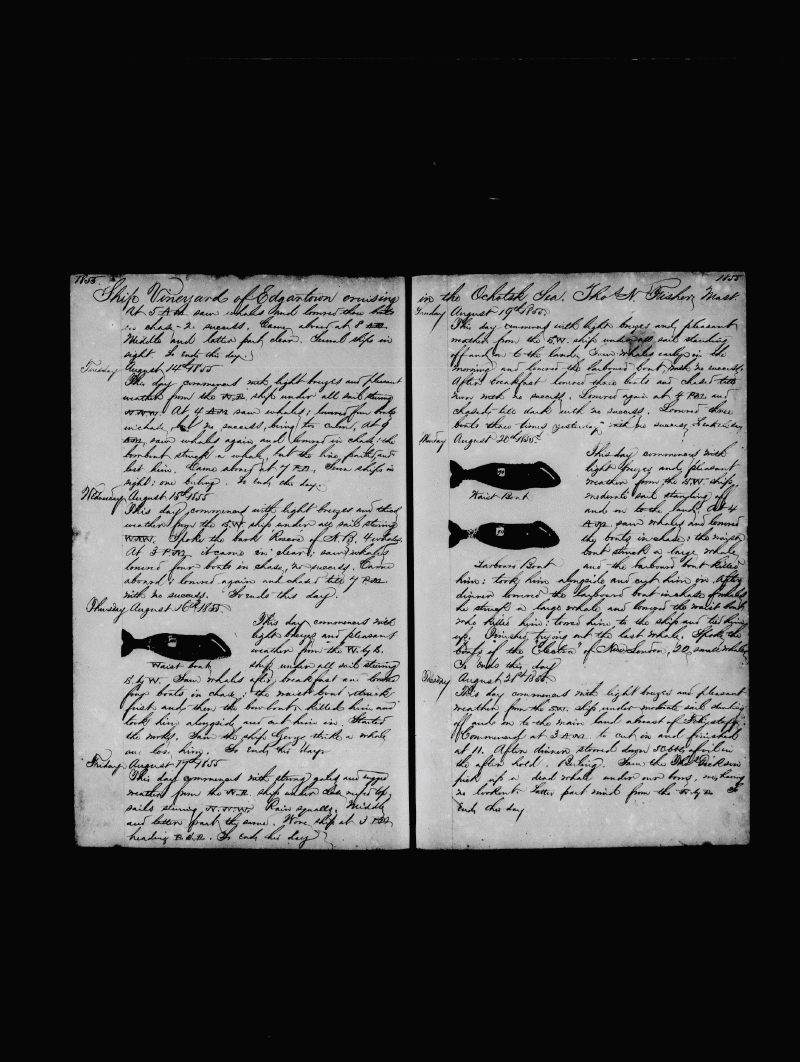 1855
Ship Vineyard of Edgartown cruising
At 5 A.M. saw whales and lowered three boats
in chase - 2. success. Came aboard at 8
Middle and latter part clear. Several ships in
sight. So ends this day.
Tuesday August 14th 1855
This day commences with light breezes and pleasant
weather from the ship under all sail steering
At 4 A.M. saw whales, lowered four boats
in chase, but no success, being too calm. At 9
A.M. saw whales again and lowered in chase: the
bowboat struck a whale, but the line parted and
lost him. Came aboard at 7 P.M. Seven ships in
sight: one boiling. So ends this day.
Wednesday August 15th 1855
This day commences with light breezes and thick
weather from the S.W. ship under all sail steering
W.N.W. Spoke the bark of N.B. 4 whales.
At 3 P.M. it came in clear; saw whales
lowered four boats in chase, no success. Came
aboard; lowered again and chased till 7 P.M.
with no success. So ends this day.
Thursday August 16th 1855
This day commences with
light breezes and pleasant
weather from the W. by S.
ship under all sail steering
Waist boat
S. by W. Saw whales after breakfast and lowered
four boats in chase; the waist boat struck
first and then the bow boat; killed him and
took him alongside and cut him in. Started
the works. Saw the ship George strike a whale
and lose him. So ends this day.
Friday August 17th 1855
This day commences with strong gales and rugged
weather from the ship under close reefed top
sails steering N.N.W. Rain squally. Middle
and latter part the same. Wore ship at 3 P.M.
heading So ends this day
1855
in the Ochotsk Sea. Thos N. Fisher, Mast.
Sunday August 19th 1855
This day commences with light breezes and pleasant
weather from the S.W. ship under all sail standing
off and on to the land. Saw whales early in the
morning and lowered the larboard boat with no success.
After breakfast lowered three boats and chased till
noon with no success. Lowered again at 4 P.M. and
chased till dark with no success. Lowered three
boats three times yesterday with no success. So ends this day
Monday August 20th 1855
This day commences with
light breezes and pleasant
weather from the S.W. ship
Waist Boat
moderate sail standing off
and on to the land. At 4
A.M. saw whales and lowered
the boats in chase: the waist
boat struck a large whale
Larboard Boat
and the larboard boat killed
him: took him alongside and cut him in. After
dinner lowered the larboard boat in chase of whales
he struck a large whale and the waist boat
who killed him: towed him to the ship and tied him
up. Finished trying out the last whale. Spoke the
boats of the "Electra" of New London, 20 small whales
So ends this day
Tuesday August 21st 1855
This day commences with light breezes and pleasant
weather from the S.W. ship under moderate sail standing
off and on to the main land abreast of
Commenced at 3 A.M. to cut in and finished
at 11. After dinner stowed down of oil in
the after hold. Boiling. Saw the
pick up a dead whale under our bows, we having
no lookout. Latter part wind from the So
ends this day